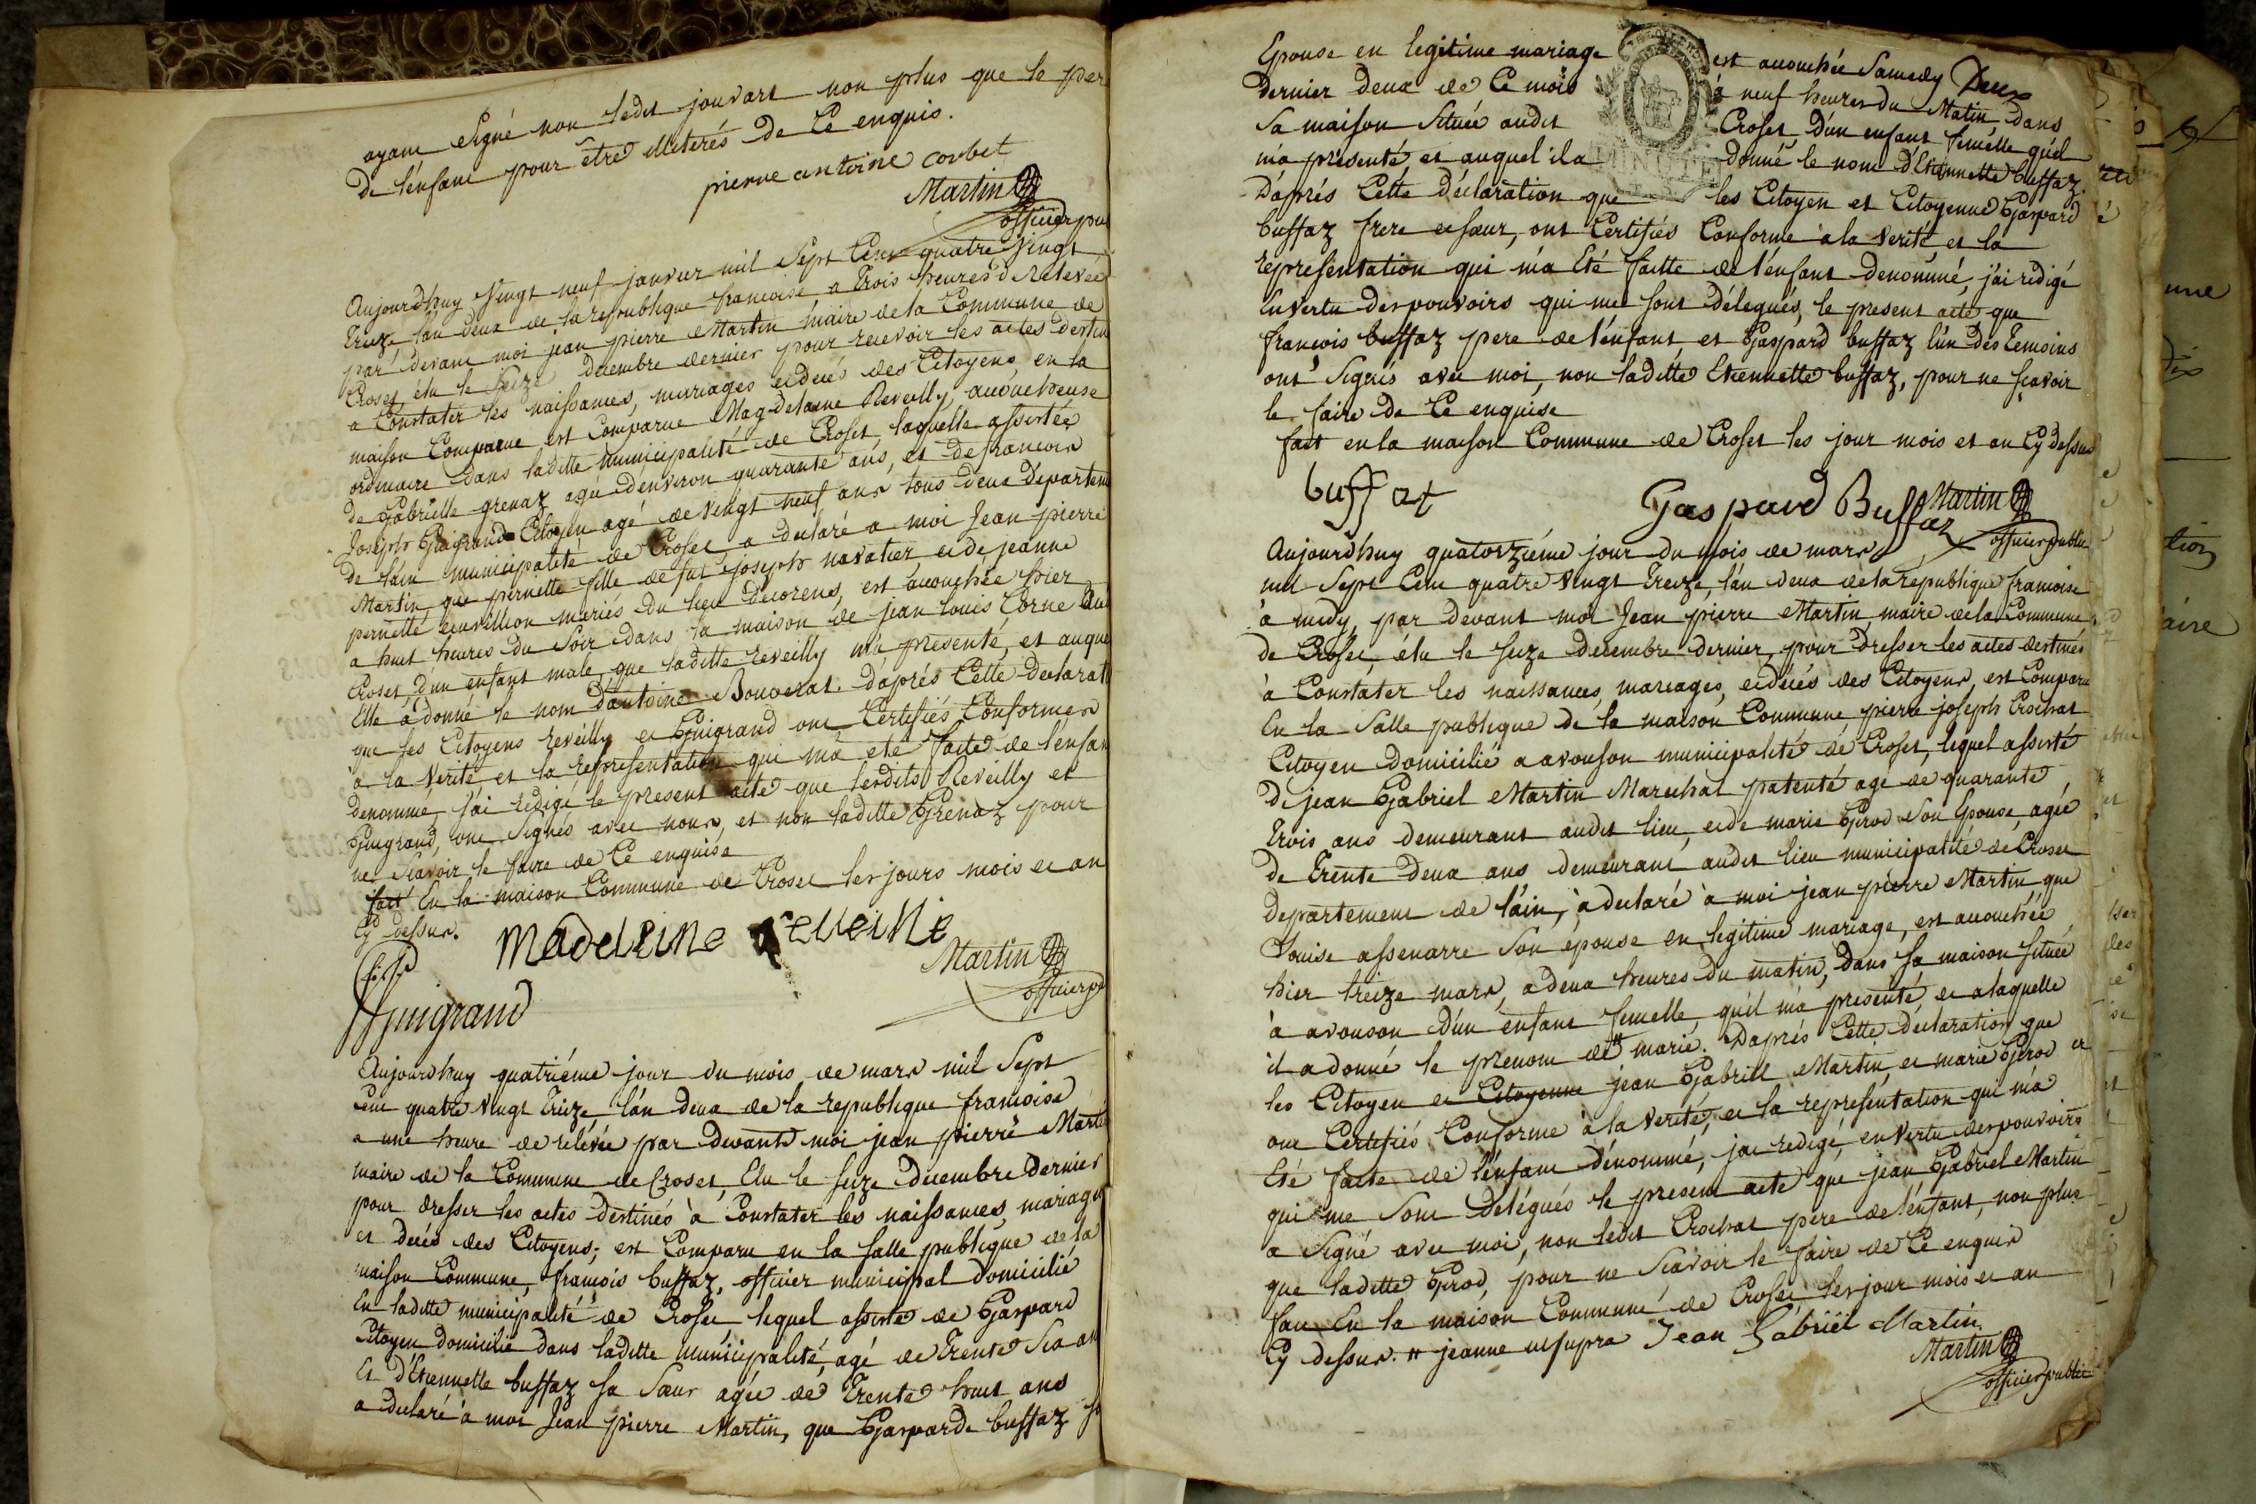 ayant signé non ledit jouvart non plus que le per
de l'enfant pour être illiterés de ce enquis.
pierre antoine corbet
Martin
officier pu
Aujourdhuy Vingt neuf janvier mil Sept Cent quatre Vingt
Treize l'an deux de la republique francoise a Trois heures d Relevée
par devant moi jean pierre Martin maire de la Commune de
Croset élu le seize decembre dernier pour recevoir les actes destin
a Constater les naissances, mariages et decès des Citoyens, en la
maison Commune est Comparue Magdelaine Reveilly, accoucheuse
ordinaire dans laditte municipalité de Croset, laquelle assistée
de Gabrielle grenaz agée d'environ quarante ans, et de francois
Joseph Guigrand Citoyen agé de Vingt neuf ans tous deux departem
de l'ain municipalité de Croset a declaré a moi Jean pierre
Martin, que pernette fille de fut joseph navatier et de jeanne
pernette ecuvillion mariés du lieu decorens, est accouchée hier
a huit heures du Soir dans la maison de jean louis Corne du
Croset, d'un enfant male, que laditte reveilly m'a présenté, et auque
Elle a donné le nom d'antoine Bouverat. d'après Cette Declarat
que les Citoyens Reveilly et Guigrand ont Certifiés Conformes
à la Verité, et la représentation qui m'a eté faite de l'enfan
denommé, j'ai redigé le present acte que lesdits Reveilly et
Guigrand, ont Signés avec nous, et non laditte Grenaz pour
ne Scavoir le faire de Ce enquise
fait En la maison Commune de Croset les jours mois et an
Cy dessus.
Madeleine revelie
Martin
officier pu
Guigrand
Aujourdhuy quatriéme jour du mois de mars mil Sept
Cent quatre Vingt Treize l'an deux de la republique francoise
a une heure de rélévée par Devant moi jean pierre Marti
maire de la Commune de Croset, Elu le seize Decembre Dernier
pour dresser les actes destinés à Constater les naissances, mariages
et decés des Citoyens; est Comparu en la salle publique de la
maison Commune, françois buffaz, officier municipal domicilié
En laditte municipalité de Croset lequel assisté de Gaspard
Citoyen domicilié dans laditte municipalité, agé de Trente Six an
Et d'Etiennette buffaz sa Sœur agée de Trente huit ans
a declaré à moi Jean pierre Martin, que Gasparde buffaz
Epouse en legitime mariage est accouchée Samedy Deux
dernier deux de Ce mois à neuf heures du Matin dans
Sa maison Située audit Croset d'un enfant femelle qu'il
m'a présenté et auquel il a donné le nom d'Etiennette buffaz.
D'après Cette déclaration que les Citoyen et Citoyenne Gaspard
buffaz frere et sœur, ont Certifiés Conforme a la verité et la
représentation qui m'a Eté faitte de l'enfant denommé, j'ai rédigé
En vertu des pouvoirs qui me sont délegués, le present acte que
françois buffaz pere de l'enfant, et Gaspard buffaz l'un des Temoins
ont Signés avec moi, non laditte Etiennette buffaz, pour ne scavoir
le faire de Ce enquise
fait en la maison Commune de Croset les jour mois et an Cy dessus
buffat
Gaspard Buffaz
Martin
officier public
Aujourdhuy quatorziéme jour du mois de mars
mil Sept Cent quatre vingt Treize, l'an deux de la république francoise
à midy, par devant moi Jean pierre Martin, maire de la Commune
de Croset élu le seize Decembre dernier, pour Dresser les actes destinés
à Constater les naissances, mariages, et décés des Citoyens, est Comparu
En la Salle publique de la maison Commune pierre joseph Crochat
Citoyen domicilié a avouson municipalité de Croset, lequel assisté
de jean Gabriel Martin Marechal patenté agé de quarante
Trois ans demeurant audit lieu, et de marie Girod Son Epouse, agée
de Trente deux ans demeurant audit lieu municipalité de Croset
departement de l'ain, à declaré à moi jean pierre Martin que
Louise assenarre Son épouse en legitime mariage, est accouchée
hier treize mars, a deux heures du matin, dans sa maison située
à avouson d'un enfant femelle, qu'il m'a présenté, et a laquelle
il a donné le prenom de " marie. D'après Cette déclaration que
les Citoyen et Citoyenne jean Gabriel Martin, et marie Girod
ont Certifiés Conforme à la Verité, et la représéntation qui m'a
Eté faite de l'enfant dénommé, jai redigé, en Vertu des pouvoirs
qui me Sont Délégués le present acte que jean Gabriel Martin
a Signé avec moi, non ledit Crochat pere de l'enfant, non plus
que laditte Girod, pour ne Scavoir le faire de Ce enquis
fait En la maison Commune de Croset, les jour mois et an
Cy dessus. " jeanne ut supra Jean Gabriel Martin
Martin
officier public